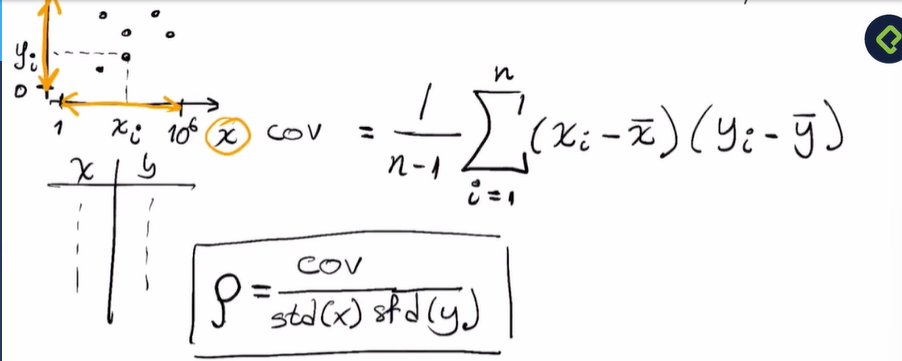 yᵢ
0
1 xᵢ 10⁶ x
cov = 1/(n-1) Σ_{i=1}^{n} (xᵢ - x̄)(yᵢ - ȳ)
x | y
ρ = cov / (std(x) std(y))